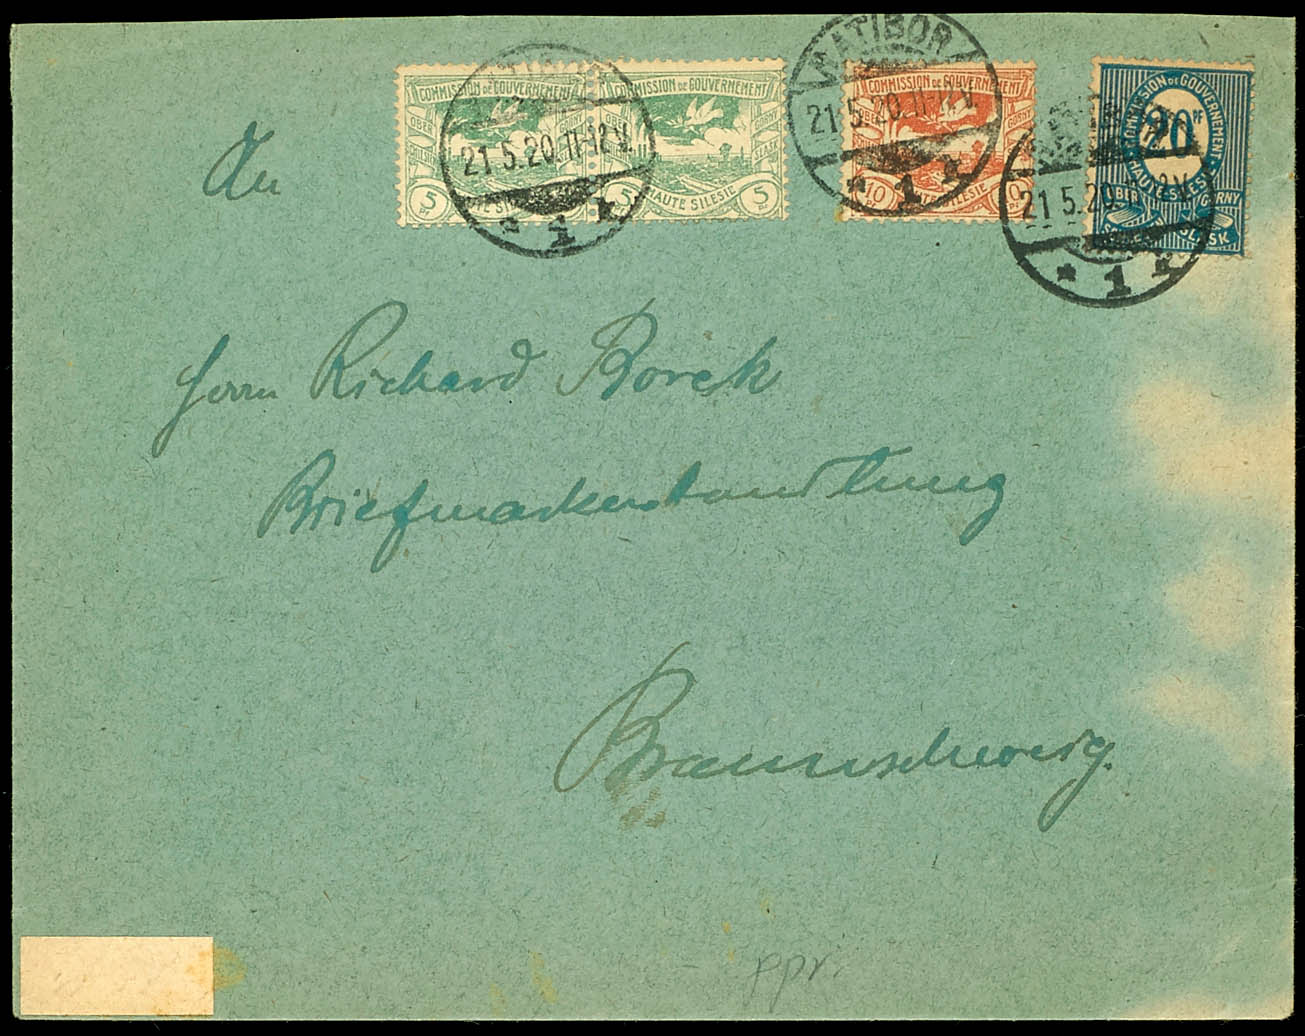 COMMISSION DE GOUVERNEMENT COMMISSION DE GOUVERNEMENT
OBER GORNY
SLASK
5 5 5
Pf Pf
HAUTE SILESIE
21.5.20.11-12V.
* 1 *
RATIBOR
COMMISSION DE GOUVERNEMENT
OBER GORNY
21.5.20.11-12V.
10
HAUTE SILESIE
* 1 *
20 PF
COMMISSION DE GOUVERNEMENT
HAUTE SILESIE
OBER GORNY
SLASK
21.5.20.
* 1 *
An
Herrn Richard Borek
Briefmarkenhandlung
Braunschweig.
ppr.